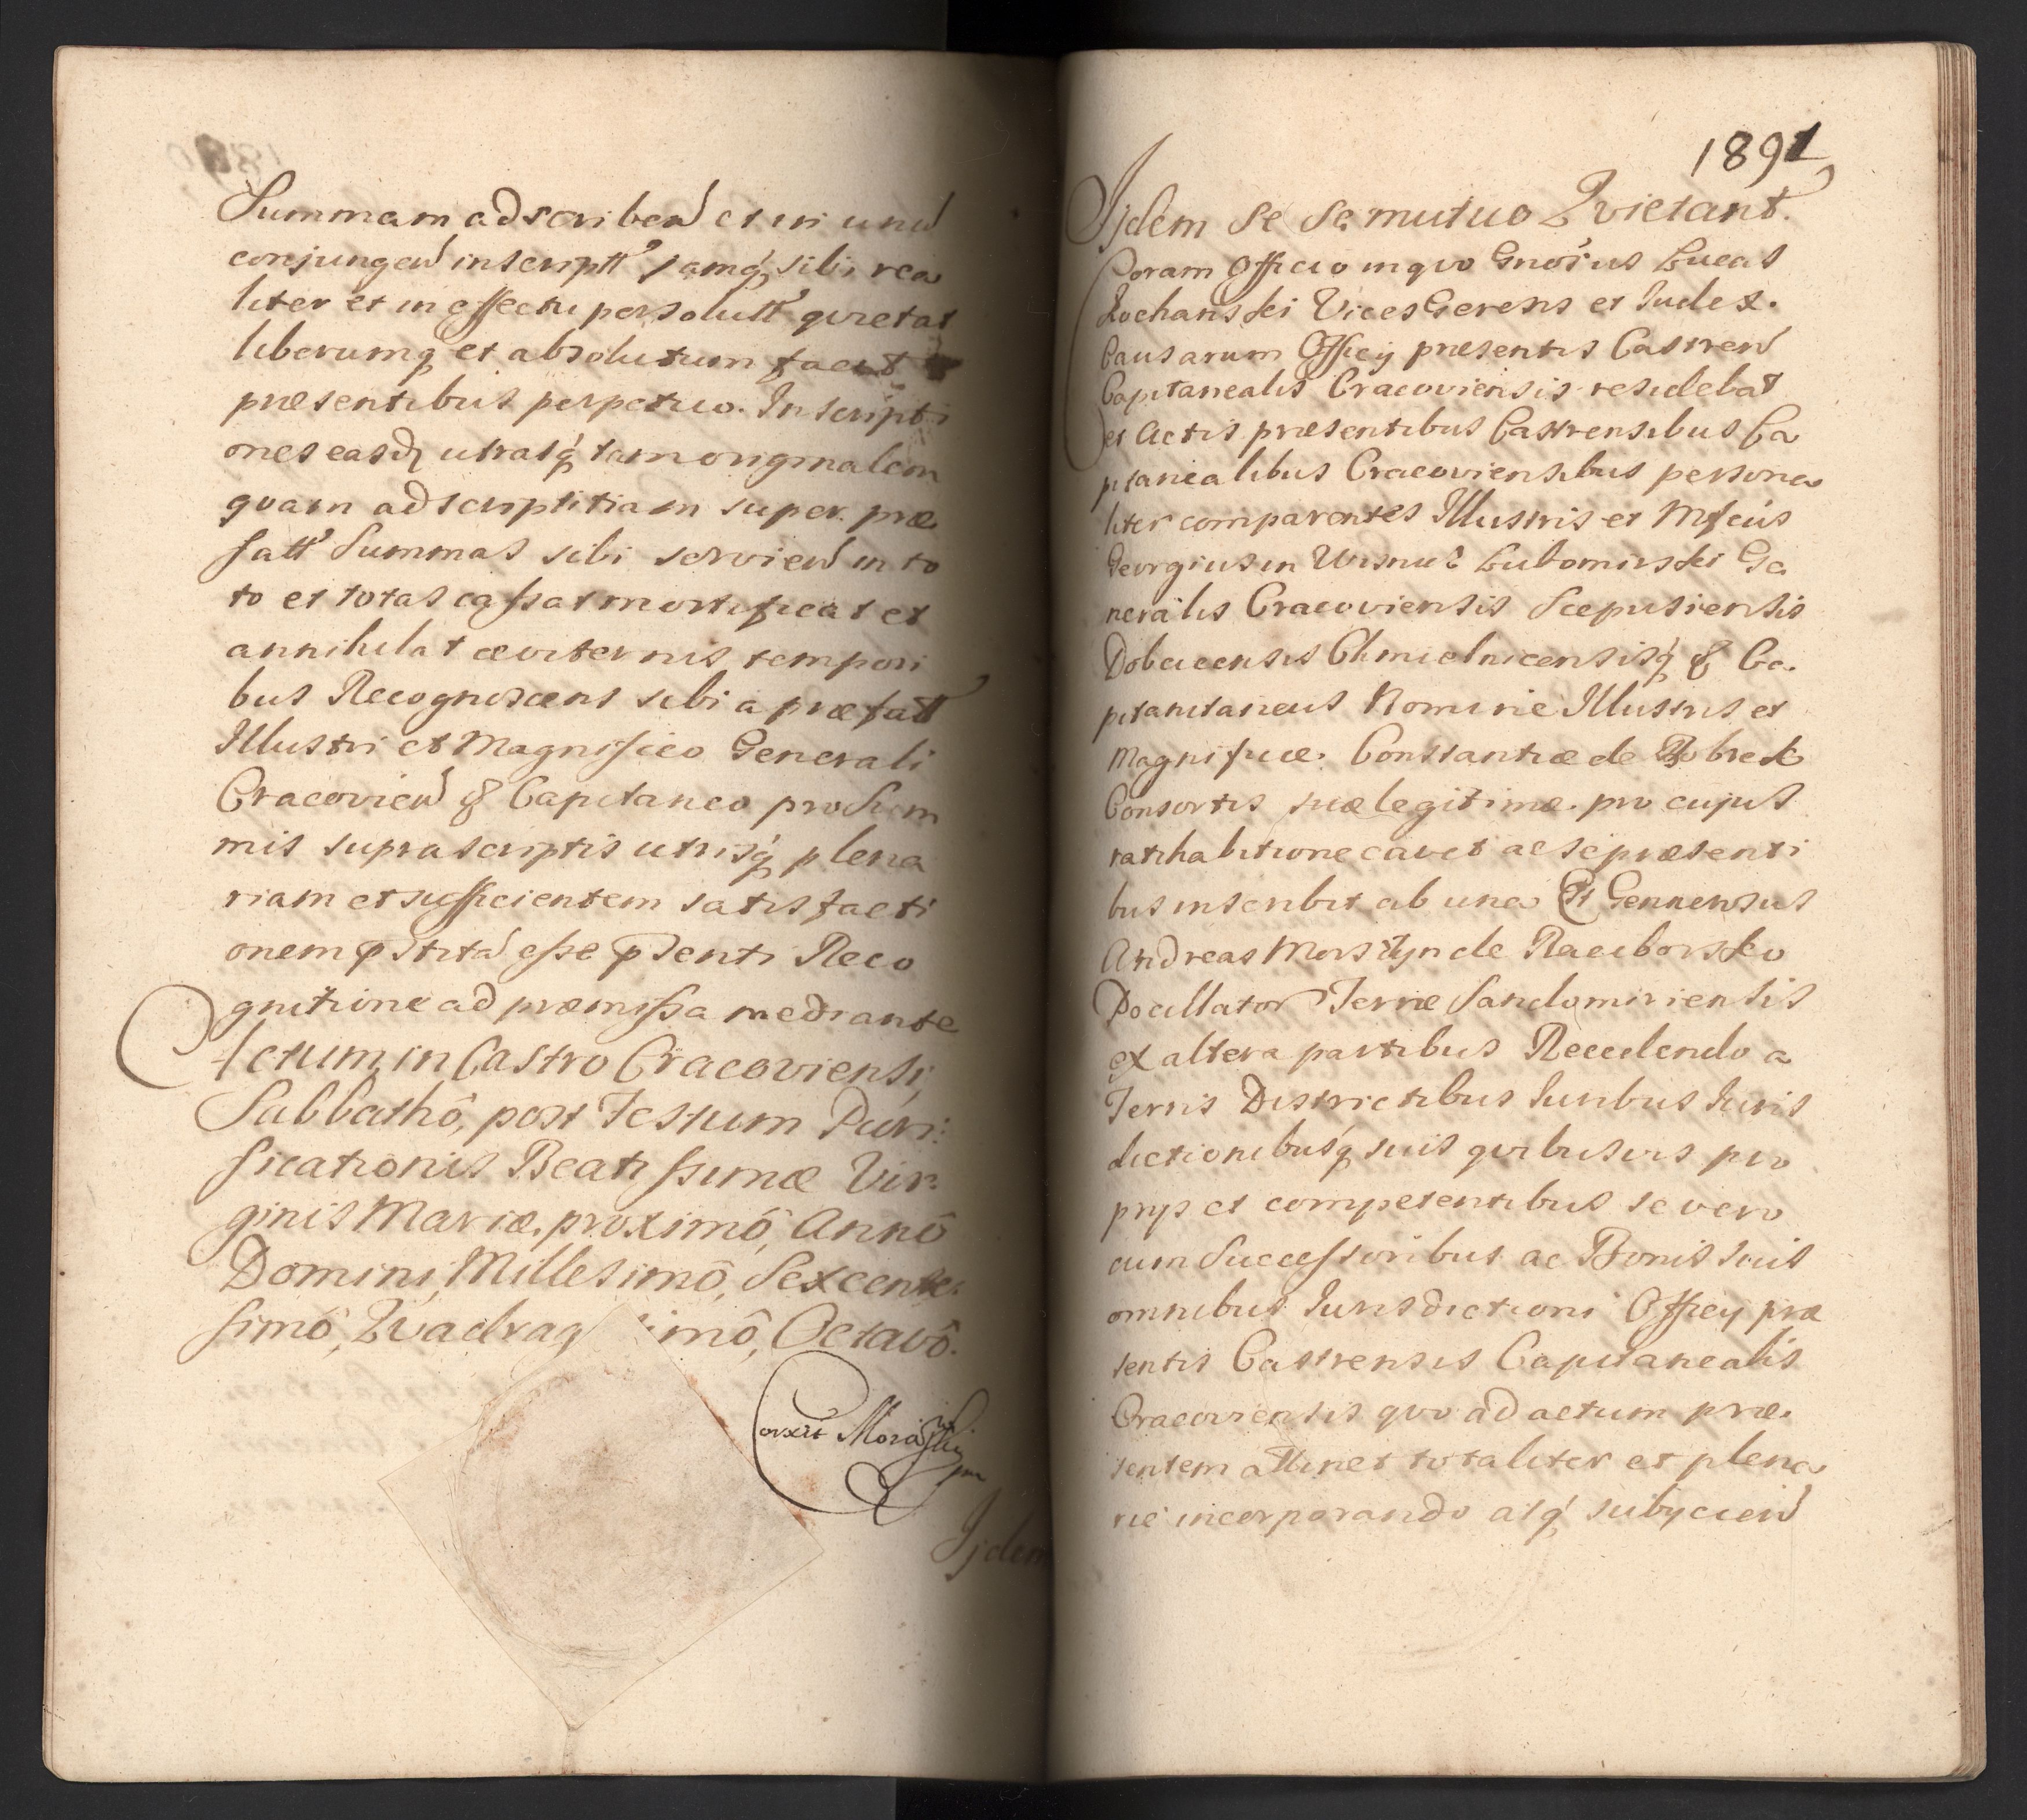 Summam adscriben et in unu
conjungen inscriptt jamq sibi rea
liter et in effectu persolutt quietat
liberumq et absolutum facit
præsentibus perpetuo. Inscripti
ones easd utrasq tam originalem
quam adscriptitiam super præ
fatt Summas sibi servien in to
to et totas cassat mortificat et
annihilat æviternis tempori
bus Recognoscens sibi a præfatt
Illustri et Magnifico Generali
Cracovien & Capitaneo pro Sum
mis suprascriptis utrisq plena
riam et sufficientem satisfacti
onem esse Reco
gnitione ad præmissa mediante
Actum in Castro Cracoviensi,
Sabbathô, post Festum Puri:
ficationis Beatissimæ Vir:
ginis Mariæ proximô, Annô
Domini, Millesimô, Sexcente:
simô, Quadrag imô, Octavô.
Ijdem
1891
Ijdem se se mutuo Quietant.
Coram Officio in quo Gnosus Lucas
Kochanski Vices Gerens et Iudex
Causarum Officij præsentis Castren
Capitanealis Cracoviensis residebat
et Actis præsentibus Castrensibus Ca
pitanealibus Cracoviensibus persona
liter comparentes Illustris et Mfcus
Georgius in Wisnic Lubomirski Ge
neralis Cracoviensis Scepusiensis
Dobcicensis Chmielnicensisq & Ca
pitanitaneus Nomine Illustris et
Magnificæ Constantiæ de Bobrek
Consortis suæ legitimæ pro cujus
ratihabitione cavet ac se præsenti
bus inscribit ab una Et Generosus
Andreas Morstyn de Raciborsko
Pocillator Terræ Sandomiriensis
ex altera partibus Recedendo a
Terris Districtibus Iuribus Iuris
dictionibusq suis quibusvis pro
prijs et competentibus se vero
cum Successoribus ac Bonis suis
omnibus Iurisdictioni Officij præ
sentis Castrensis Capitanealis
Cracoviensis quo ad actum præ
sentem attinet totaliter et plena
rie incorporando atq subijcien